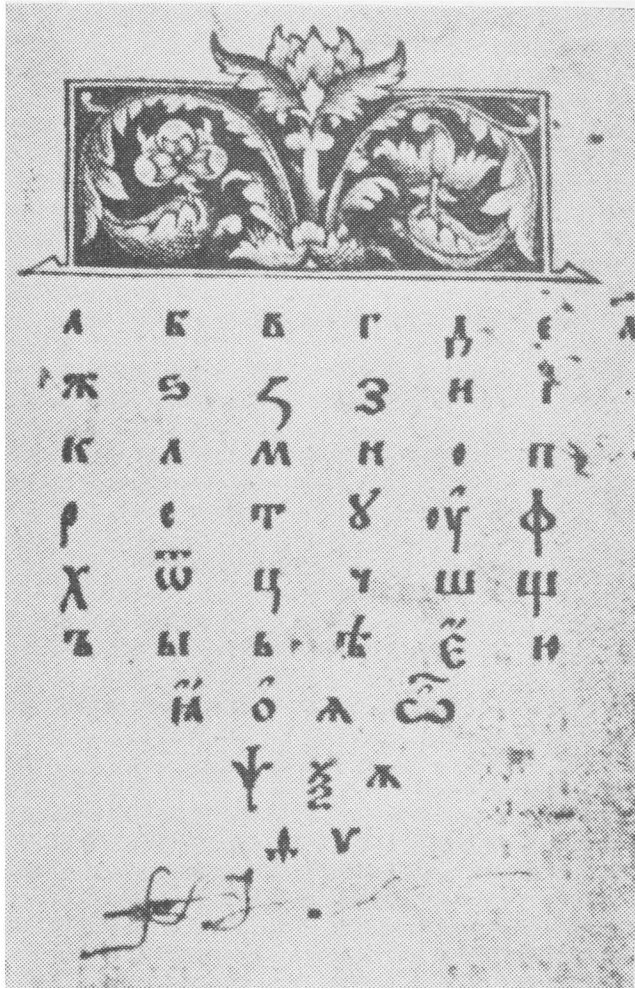 а б в г д е
ж ѕ ꙁ з и ї
к л м н о п
р с т ꙋ ѹ҆ ф
х ѿ ц ч ш щ
ъ ы ь ѣ є҆́ ю
ꙗ҆́ о҆ ѧ ѽ
ѱ ѯ ѫ
ѳ ѵ